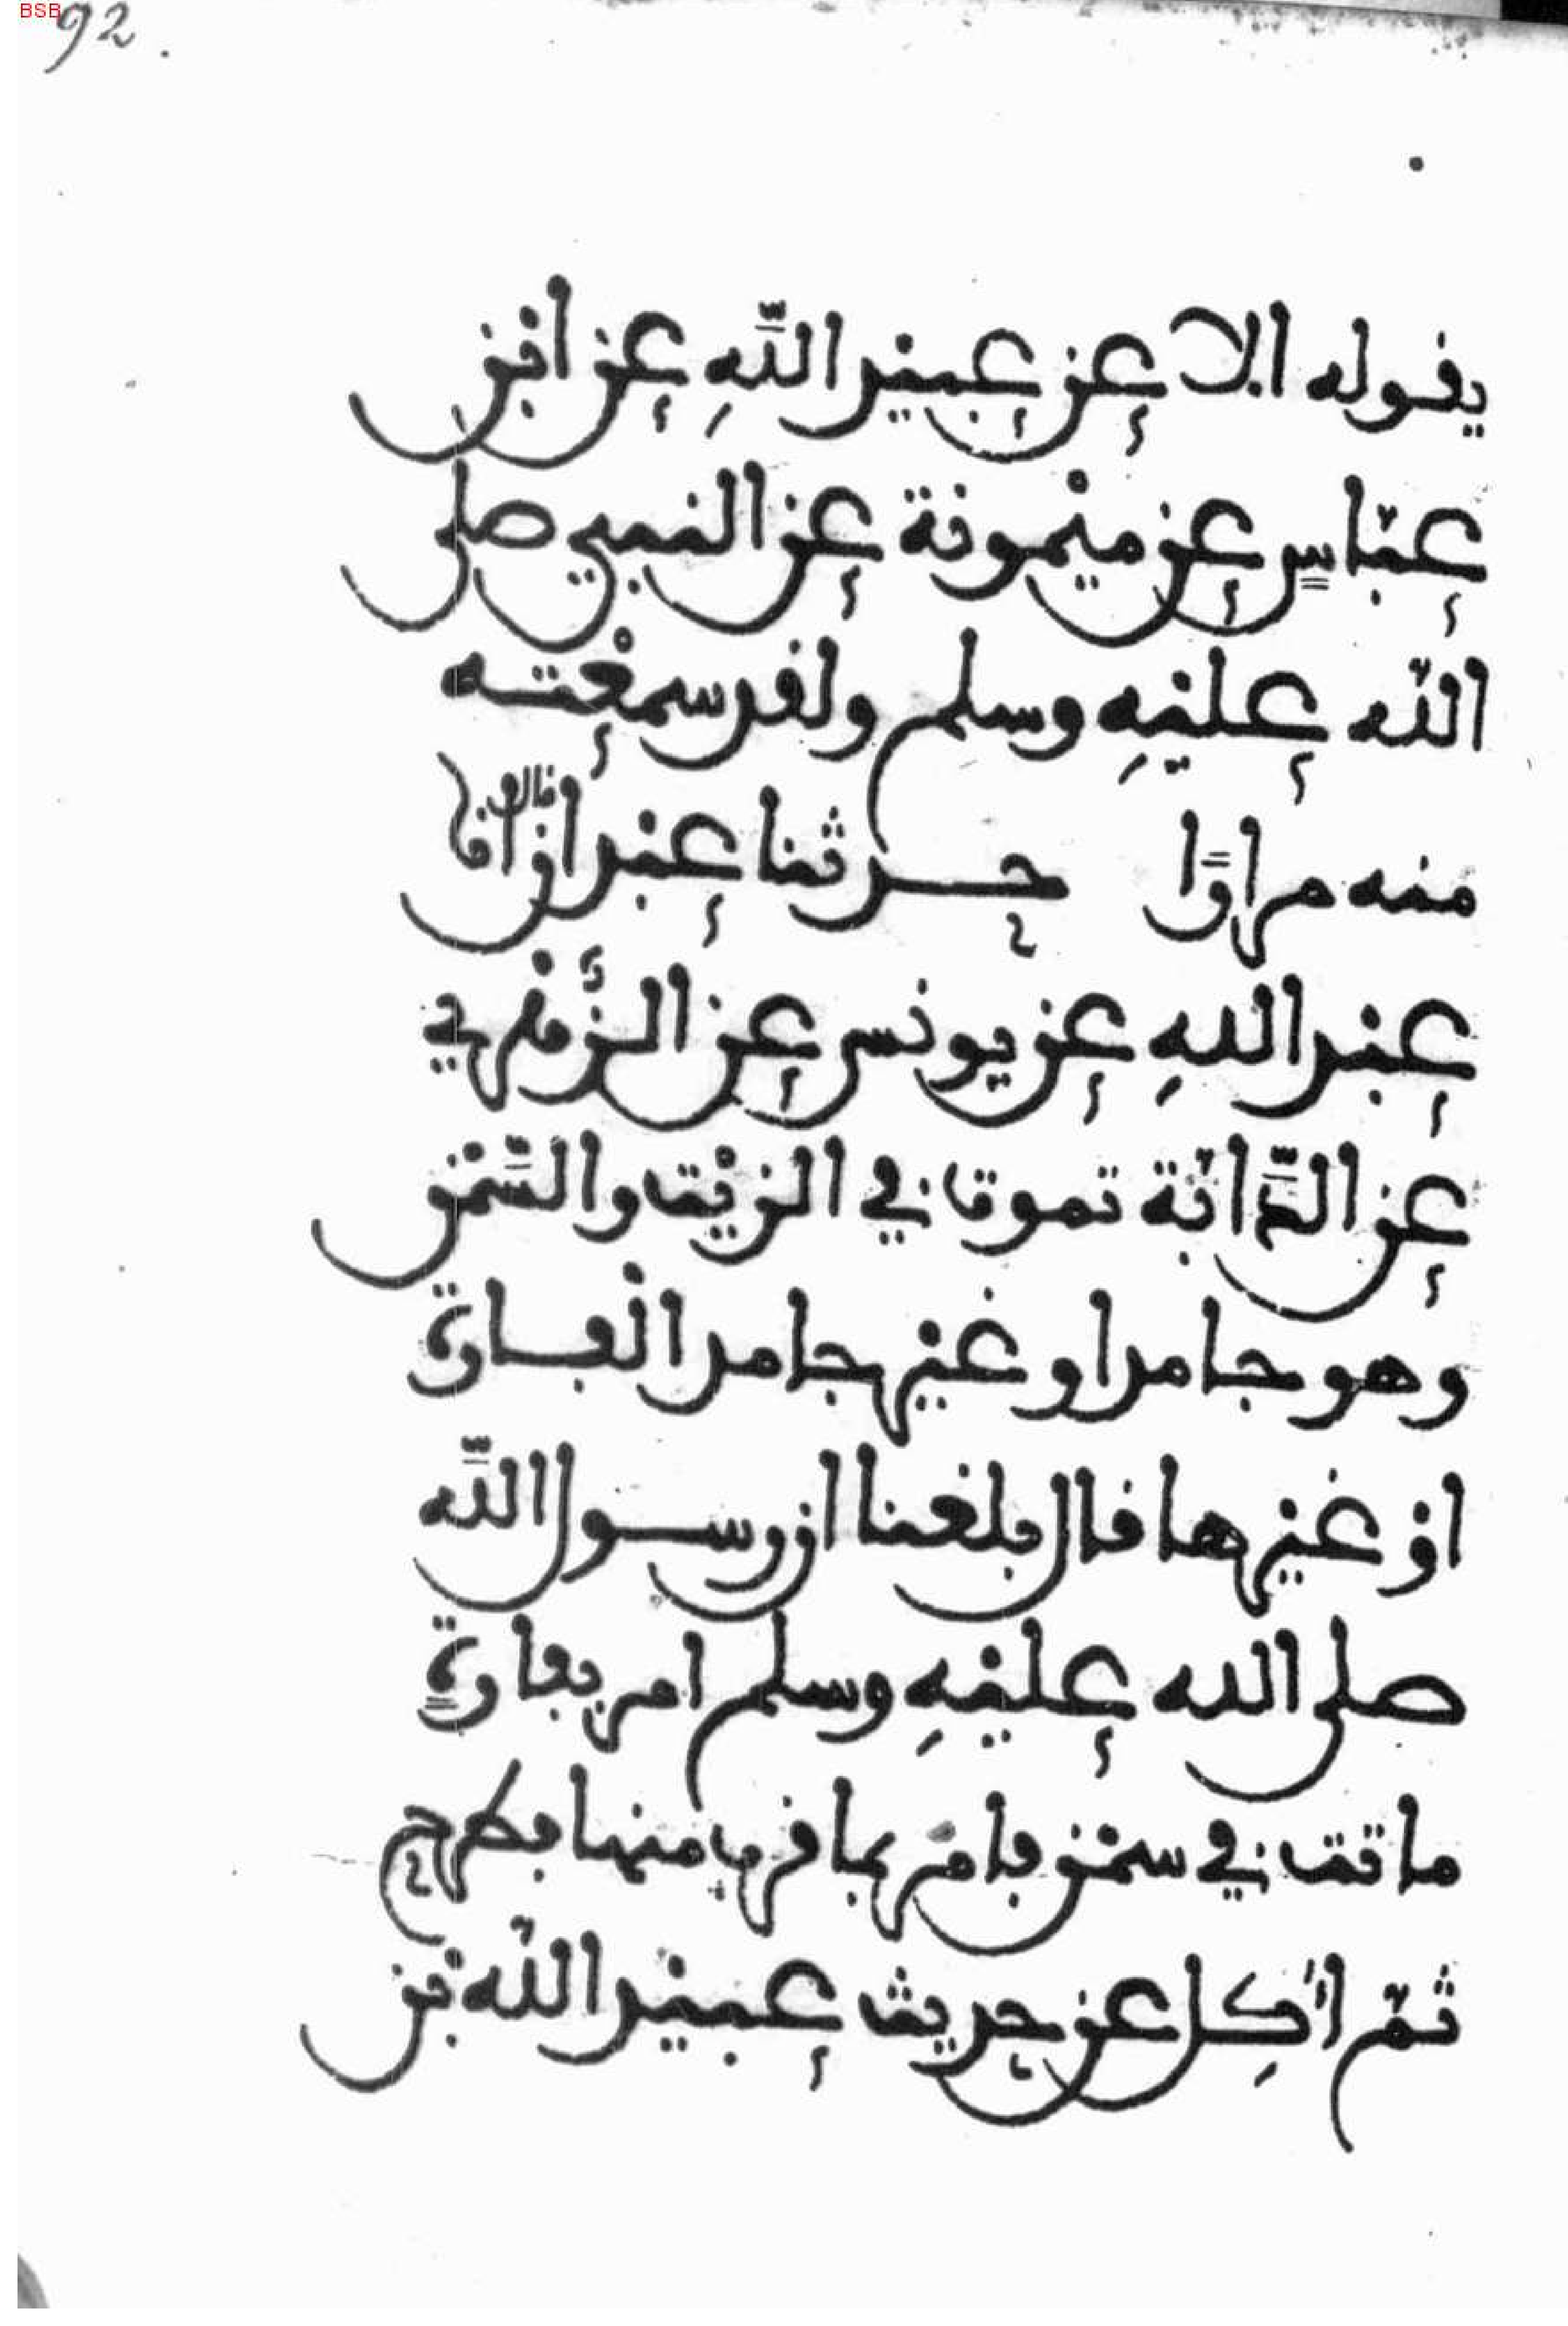 BSB
92.
يقوله الا عن عبيد اللّهِ عن ابن
عبّاسٍ عن ميْمونة عن النبي صلى
اللّه عليْهِ وسلم ولقد سمعْته
منه مرارًا حدثنا عبدان قال انا
عبْد اللهِ عن يونس عن الزُّهْري
عن الدَّابّة تموت في الزيْت والسَّمْن
وهو جامد او غيْر جامد الْفارة
اوْ غيْرها قال بلغنا ان رسول اللَّه
صلى الله عليْهِ وسلم امر بفارةٍ
ماتت في سمْن فامر بما قرب منها فطرح
ثمّ أُكِل عن حديث عبيْد اللّه بْن